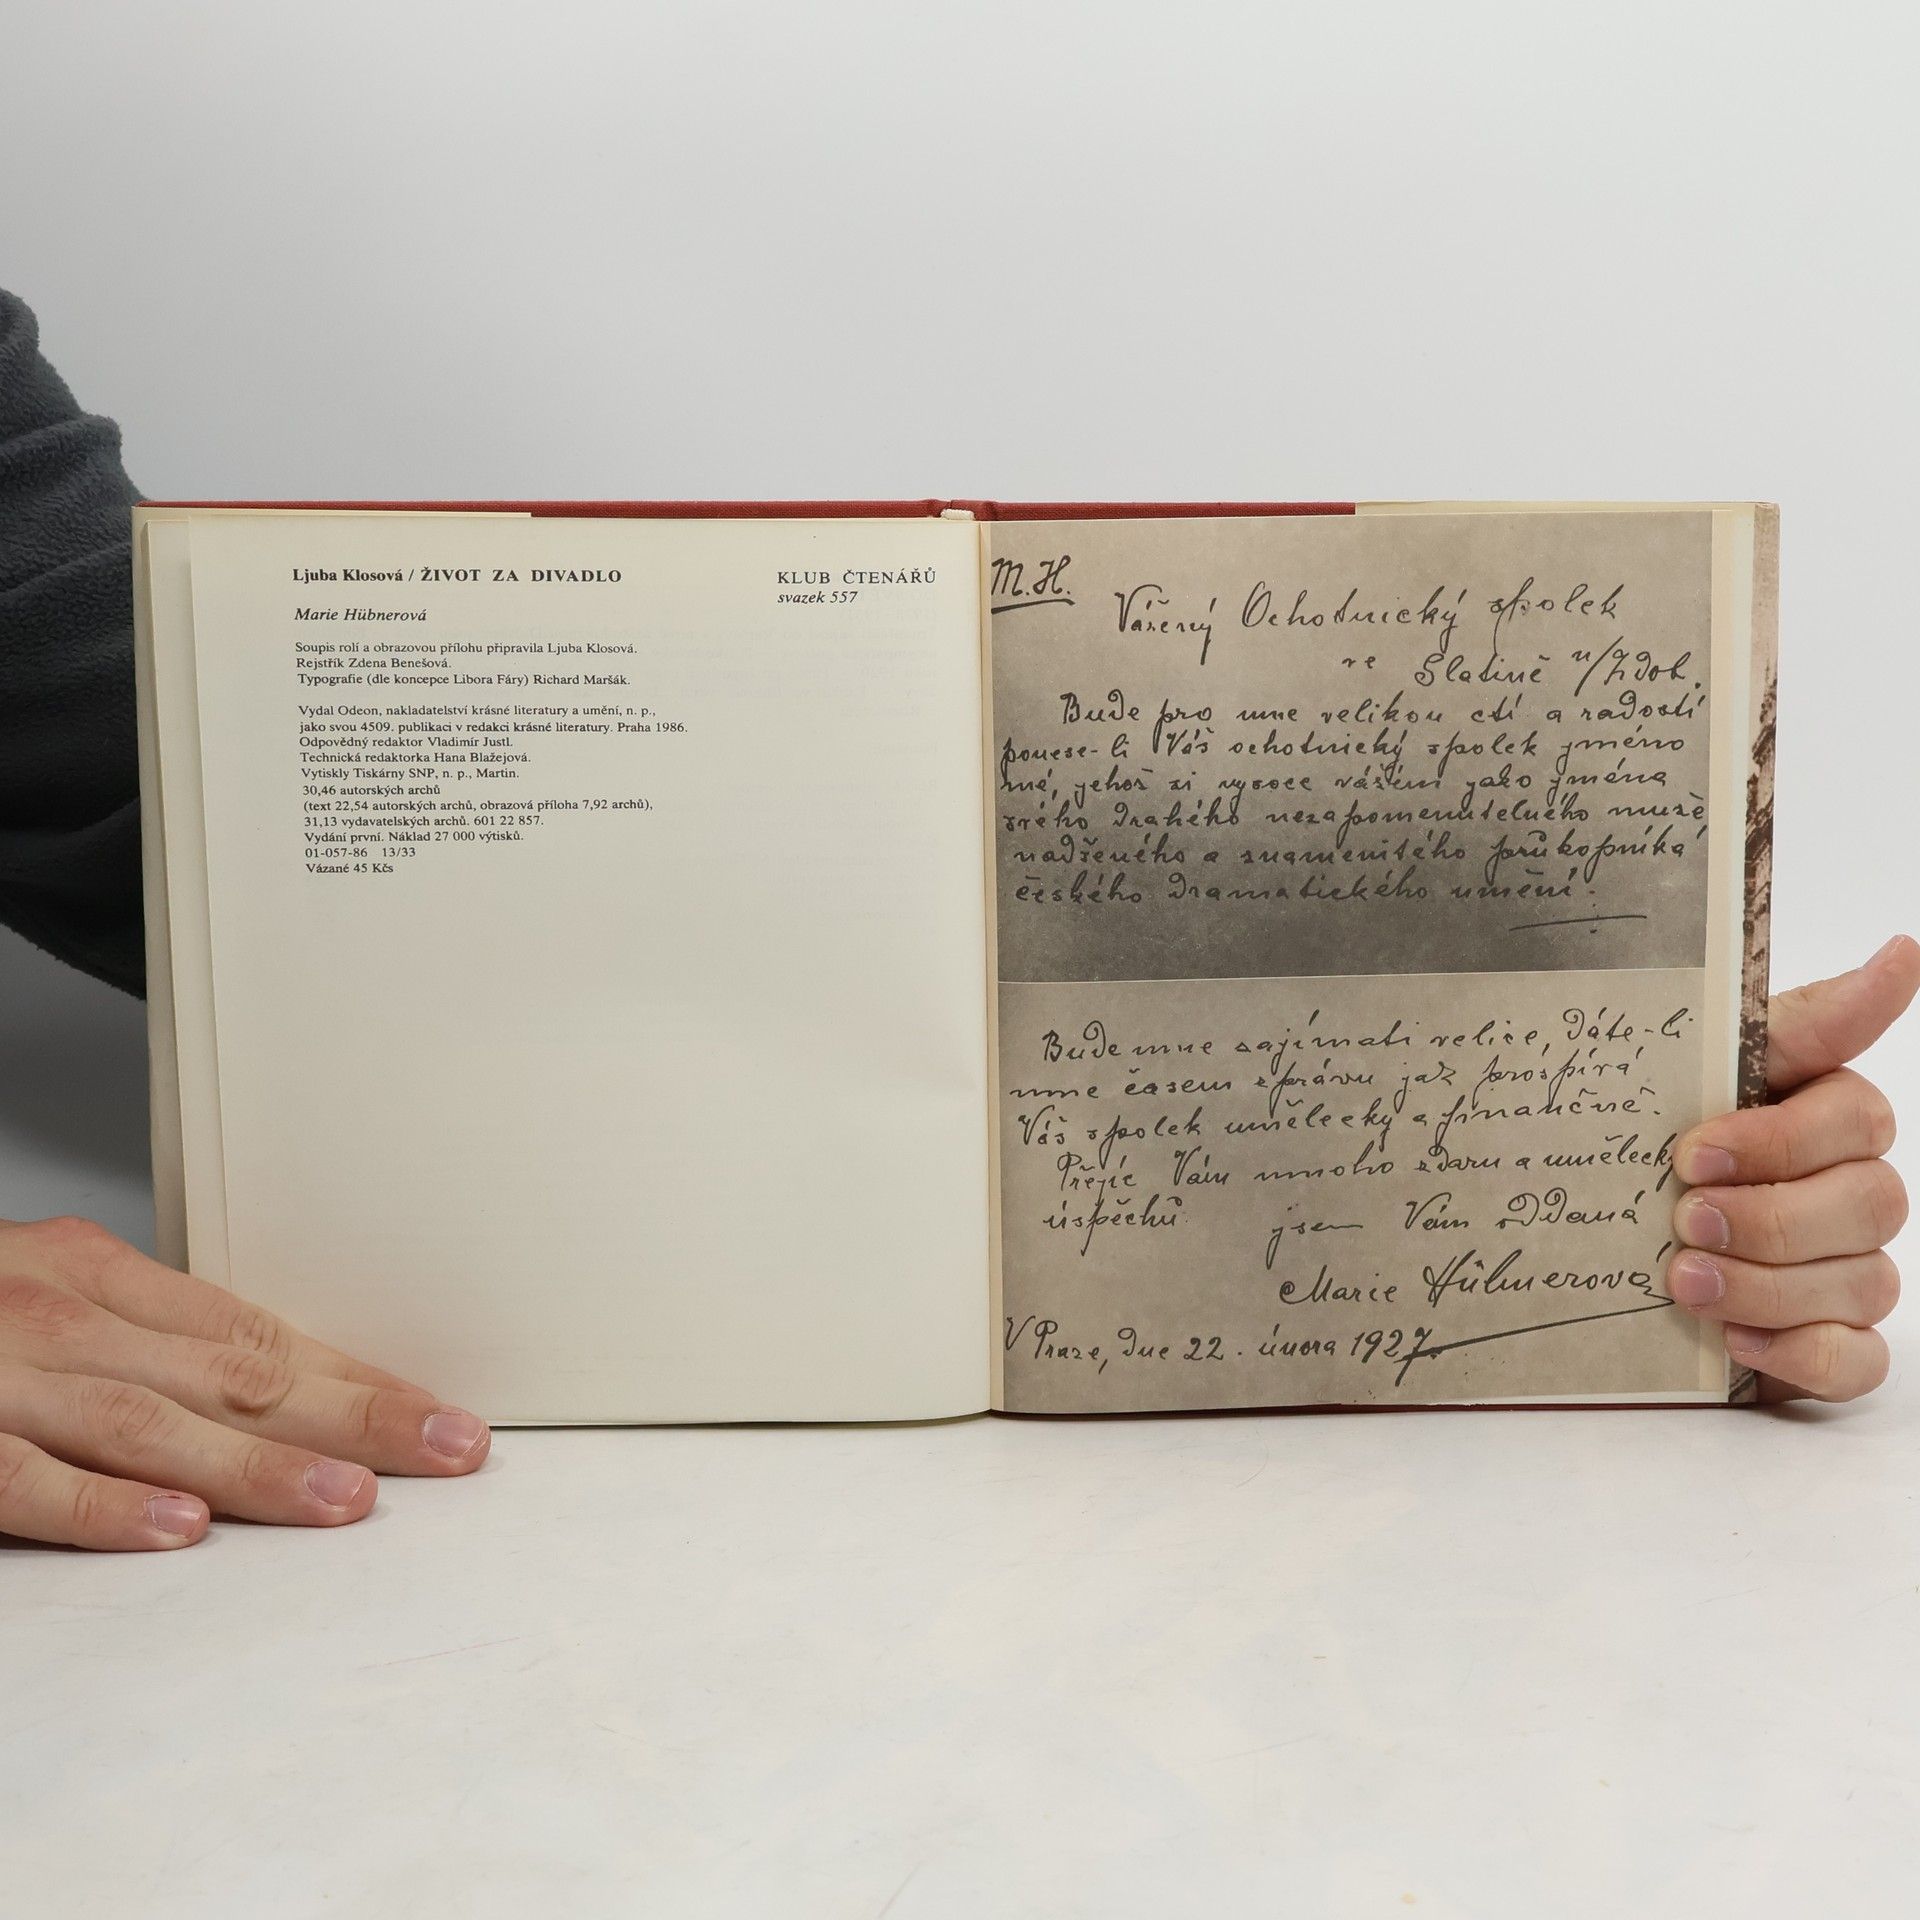 Ljuba Klosová / ŽIVOT ZA DIVADLO
KLUB ČTENÁŘŮ
svazek 557
Marie Hübnerová
Soupis rolí a obrazovou přílohu připravila Ljuba Klosová.
Rejstřík Zdena Benešová.
Typografie (dle koncepce Libora Fáry) Richard Maršák.
Vydal Odeon, nakladatelství krásné literatury a umění, n. p.,
jako svou 4509. publikaci v redakci krásné literatury. Praha 1986.
Odpovědný redaktor Vladimír Justl.
Technická redaktorka Hana Blažejová.
Vytiskly Tiskárny SNP, n. p., Martin.
30,46 autorských archů
(text 22,54 autorských archů, obrazová příloha 7,92 archů),
31,13 vydavatelských archů. 601 22 857.
Vydání první. Náklad 27 000 výtisků.
01-057-86 13/33
Vázané 45 Kčs
M. H.
Vážený Ochotnický spolek
ve Slatině n/Zdob.
Bude pro mne velikou ctí a radostí
ponese-li Váš ochotnický spolek jméno
mé, jehož si vysoce vážím jako jména
svého drahého nezapomenutelného muže
nadšeného a znamenitého průkopníka
českého dramatického umění.
Bude mne zajímati velice, dáte-li
mne časem zprávu jak prospívá
Váš spolek umělecky a finančně.
Přejíc Vám mnoho zdaru a umělecky
úspěchů jsem Vám oddaná
Marie Hübnerová
V Praze, dne 22. února 1927.